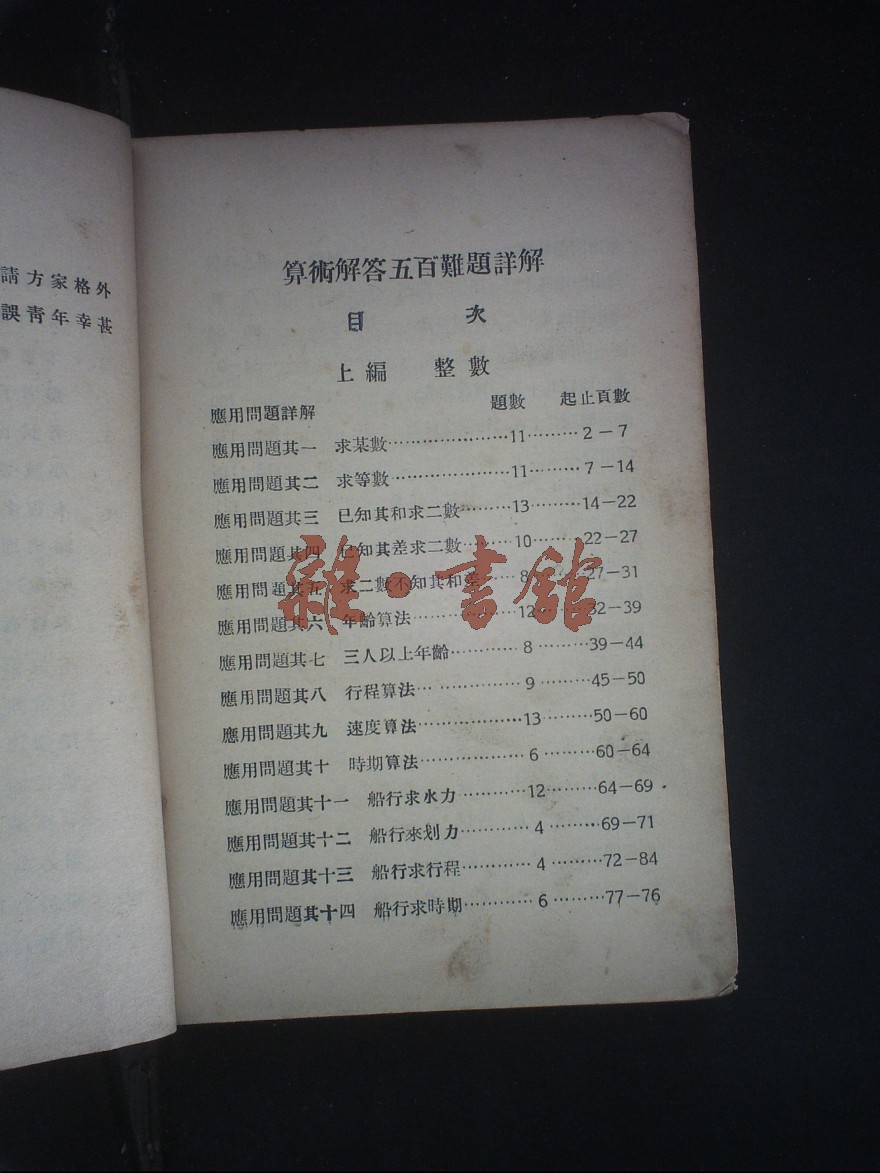 外格家方請
甚幸年靑誤
算術解答五百難題詳解
目 次
上編 整數
應用問題詳解 題數 起止頁數
應用問題其一 求某數…………………11………2－7
應用問題其二 求等數…………………11………7－14
應用問題其三 已知其和求二數………13………14－22
應用問題其四 已知其差求二數………10………22－27
應用問題其五 求二數不知其和差……8………27－31
應用問題其六 年齡算法………………12………32－39
應用問題其七 三人以上年齡…………8………39－44
應用問題其八 行程算法………………9………45－50
應用問題其九 速度算法………………13………50－60
應用問題其十 時期算法………………6………60－64
應用問題其十一 船行求水力…………12………64－69
應用問題其十二 船行來划力…………4………69－71
應用問題其十三 船行求行程…………4………72－84
應用問題其十四 船行求時期…………6………77－76
雜·書館